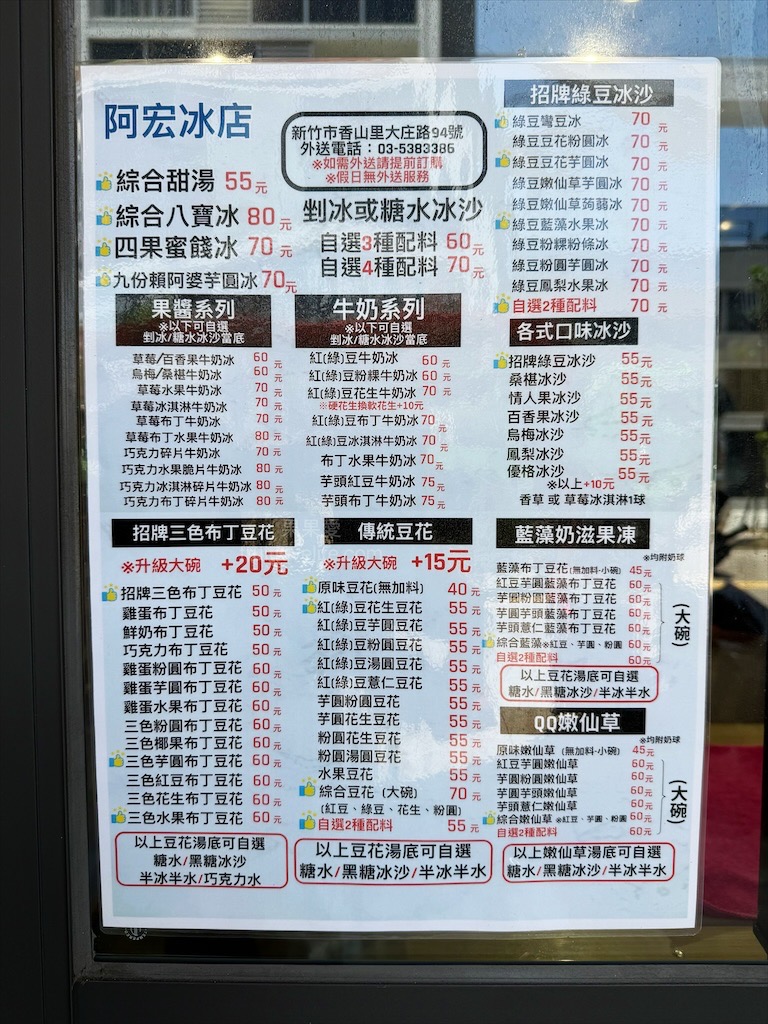 阿宏冰店
新竹市香山里大庄路94號
外送電話：03-5383386
※如需外送請提前訂購
※假日無外送服務
綜合甜湯 55元
綜合八寶冰 80元
四果蜜餞冰 70元
九份賴阿婆芋圓冰 70元
剉冰或糖水冰沙
自選3種配料 60元
自選4種配料 70元
招牌綠豆冰沙
綠豆彎豆冰 70元
綠豆豆花粉圓冰 70元
綠豆豆花芋圓冰 70元
綠豆嫩仙草芋圓冰 70元
綠豆嫩仙草蒟蒻冰 70元
綠豆藍藻水果冰 70元
綠豆粉粿粉條冰 70元
綠豆粉圓芋圓冰 70元
綠豆鳳梨水果冰 70元
自選2種配料 70元
果醬系列
※以下可自選
剉冰/糖水冰沙當底
草莓/百香果牛奶冰 60元
烏梅/桑椹牛奶冰 60元
草莓水果牛奶冰 70元
草莓冰淇淋牛奶冰 70元
草莓布丁牛奶冰 70元
草莓布丁水果牛奶冰 80元
巧克力碎片牛奶冰 70元
巧克力水果脆片牛奶冰 80元
巧克力冰淇淋碎片牛奶冰 80元
巧克力布丁碎片牛奶冰 80元
牛奶系列
※以下可自選
剉冰/糖水冰沙當底
紅(綠)豆牛奶冰 60元
紅(綠)豆粉粿牛奶冰 60元
紅(綠)豆花生牛奶冰 70元
※硬花生換軟花生+10元
紅(綠)豆布丁牛奶冰 70元
紅(綠)豆冰淇淋牛奶冰 70元
布丁水果牛奶冰 70元
芋頭紅豆牛奶冰 75元
芋頭布丁牛奶冰 75元
各式口味冰沙
招牌綠豆冰沙 55元
桑椹冰沙 55元
情人果冰沙 55元
百香果冰沙 55元
烏梅冰沙 55元
鳳梨冰沙 55元
優格冰沙 55元
※以上+10元
香草 或 草莓冰淇淋1球
招牌三色布丁豆花
※升級大碗 +20元
招牌三色布丁豆花 50元
雞蛋布丁豆花 50元
鮮奶布丁豆花 50元
巧克力布丁豆花 50元
雞蛋粉圓布丁豆花 60元
雞蛋芋圓布丁豆花 60元
雞蛋水果布丁豆花 60元
三色粉圓布丁豆花 60元
三色椰果布丁豆花 60元
三色芋圓布丁豆花 60元
三色紅豆布丁豆花 60元
三色花生布丁豆花 60元
三色水果布丁豆花 60元
以上豆花湯底可自選
糖水/黑糖冰沙
半冰半水/巧克力水
傳統豆花
※升級大碗 +15元
原味豆花(無加料) 40元
紅(綠)豆花生豆花 55元
紅(綠)豆芋圓豆花 55元
紅(綠)豆粉圓豆花 55元
紅(綠)豆湯圓豆花 55元
紅(綠)豆薏仁豆花 55元
芋圓粉圓豆花 55元
芋圓花生豆花 55元
粉圓花生豆花 55元
粉圓湯圓豆花 55元
水果豆花 55元
綜合豆花 (大碗) 70元
(紅豆、綠豆、花生、粉圓)
自選2種配料 55元
以上豆花湯底可自選
糖水/黑糖冰沙/半冰半水
藍藻奶滋果凍
※均附奶球
藍藻布丁豆花(無加料-小碗) 45元
紅豆芋圓藍藻布丁豆花 60元
芋圓粉圓藍藻布丁豆花 60元
芋圓芋頭藍藻布丁豆花 60元
芋頭薏仁藍藻布丁豆花 60元
綜合藍藻※紅豆、芋圓、粉圓 60元
自選2種配料 60元
(大碗)
以上豆花湯底可自選
糖水/黑糖冰沙/半冰半水
QQ嫩仙草
※均附奶球
原味嫩仙草 (無加料-小碗) 45元
紅豆芋圓嫩仙草 60元
芋圓粉圓嫩仙草 60元
芋圓芋頭嫩仙草 60元
芋頭薏仁嫩仙草 60元
綜合嫩仙草※紅豆、芋圓、粉圓 60元
自選2種配料 60元
(大碗)
以上嫩仙草湯底可自選
糖水/黑糖冰沙/半冰半水